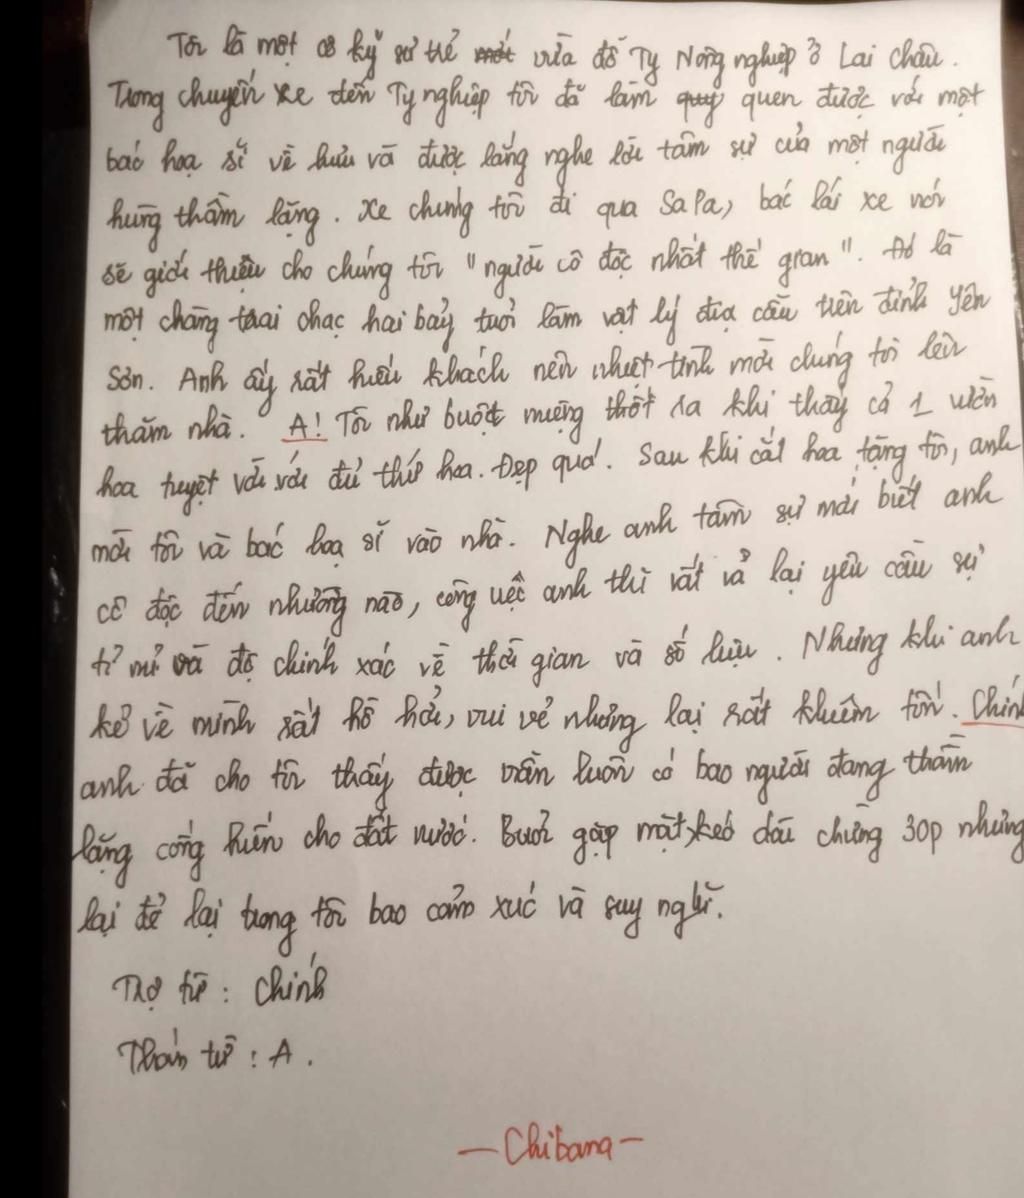 Tôi là một cô kỹ sư trẻ mới vừa đỗ Ty Nông nghiệp ở Lai Châu.
Trong chuyến xe đến Ty nghiệp tôi đã làm quy quen được với một
bác hoạ sĩ về hưu và được lắng nghe lời tâm sự của một người
hùng thầm lặng. Xe chúng tôi đi qua SaPa, bác lái xe nói
sẽ giới thiệu cho chúng tôi "người cô độc nhất thế gian". Đó là
một chàng trai chạc hai bảy tuổi làm vật lý địa cầu trên đỉnh Yên
Sơn. Anh ấy rất hiếu khách nên nhiệt tình mời chúng tôi lên
thăm nhà. A! Tôi như buột miệng thốt ra khi thấy cả 1 vườn
hoa tuyệt vời với đủ thứ hoa. Đẹp quá. Sau khi cắt hoa tặng tôi, anh
mời tôi và bác hoạ sĩ vào nhà. Nghe anh tâm sự mới biết anh
cô độc đến nhường nào, công việc anh thì vất vả lại yêu cầu sự
tỉ mỉ và độ chính xác về thời gian và số liệu. Nhưng khi anh
kể về mình rất hồ hởi, vui vẻ nhưng lại rất khiêm tốn. Chính
anh đã cho tôi thấy được vẫn luôn có bao người đang thầm
lặng cống hiến cho đất nước. Buổi gặp mặt kéo dài chừng 30p nhưng
lại để lại trong tôi bao cảm xúc và suy nghĩ.
Trợ từ : Chính
Thán từ : A.
- Chibana -